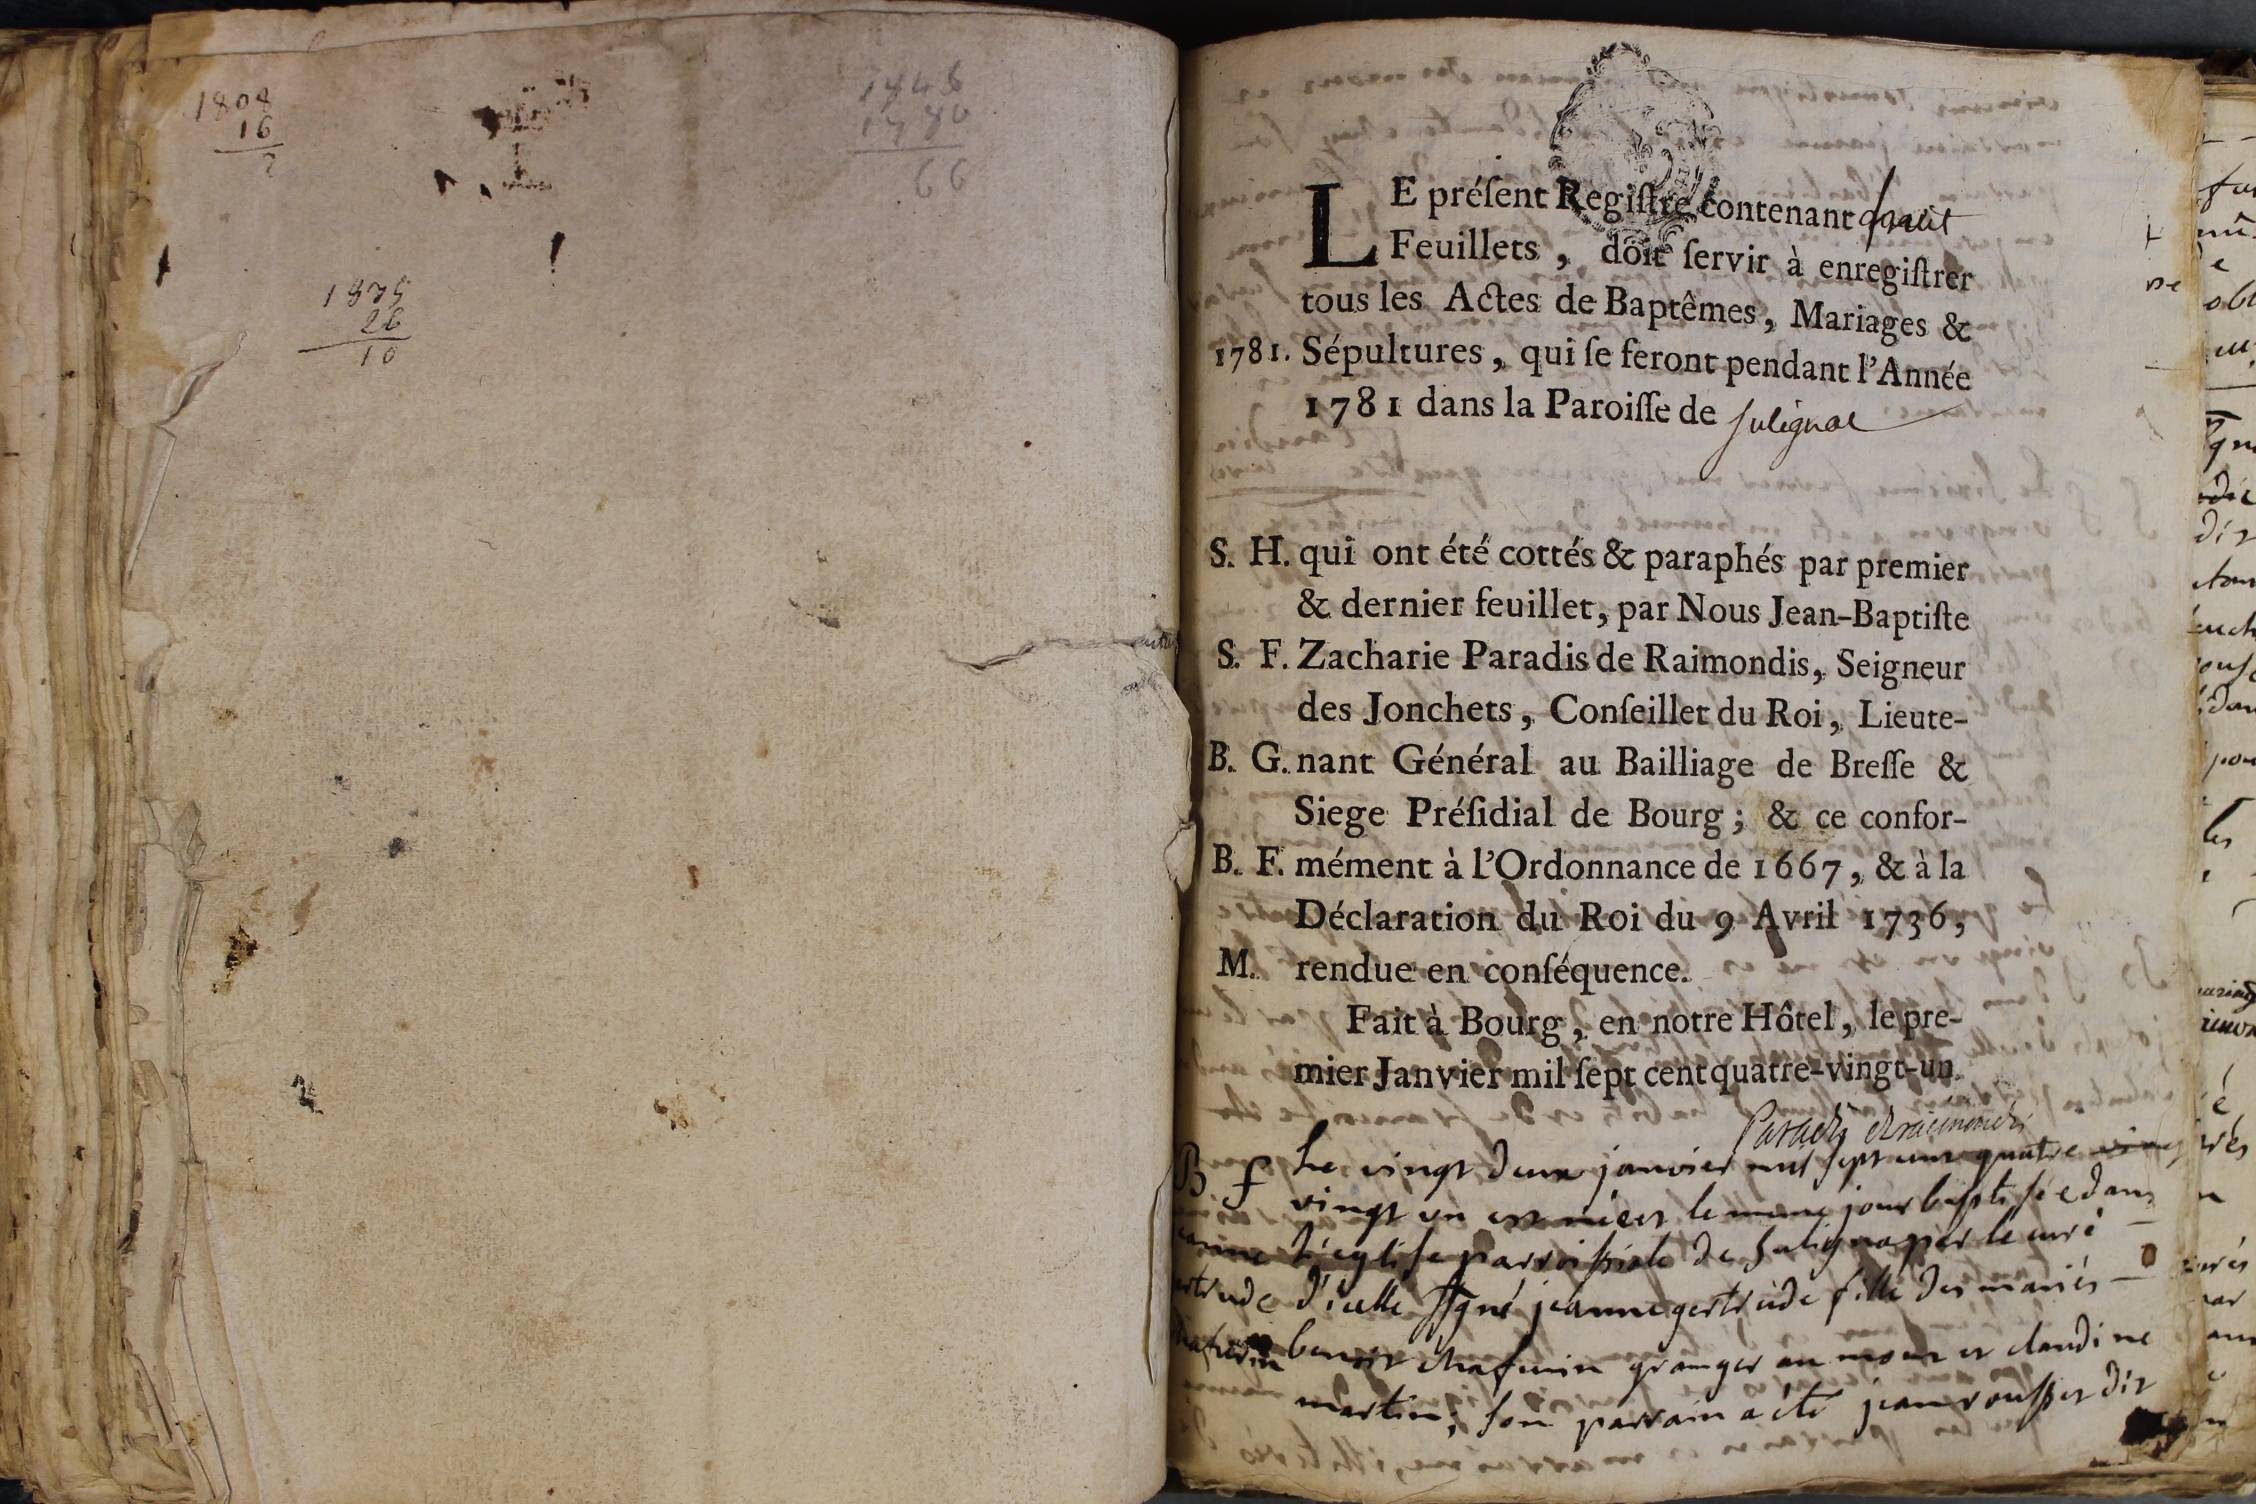 1808
16
2
1875
26
10
1846
1780
66
LE préſent Regiſtre contenant huit
Feuillets, doit ſervir à enregiſtrer
tous les Actes de Baptêmes, Mariages &
1781. Sépultures, qui ſe feront pendant l'Année
1781 dans la Paroiſſe de Sulignat
S. H. qui ont été cottés & paraphés par premier
& dernier feuillet, par Nous Jean-Baptiſte
S. F. Zacharie Paradis de Raimondis, Seigneur
des Jonchets, Conſeiller du Roi, Lieute-
B. G. nant Général au Bailliage de Breſſe &
Siege Préſidial de Bourg; & ce confor-
B. F. mément à l'Ordonnance de 1667, & à la
Déclaration du Roi du 9 Avril 1736,
M. rendue en conſéquence.
Fait à Bourg, en notre Hôtel, le pre-
mier Janvier mil ſept cent quatre-vingt-un
Paradis de raimondis
B f Le vingt deux janvier mil sept cent quatre
vingt un est née et le meme jour baptisée dans
l'eglise parroissiale de Sulignat par le curé
d'icelle ssgné jeanne gertrude fille des mariés
benoit chafurin granger au et claudine
martin; son parrain a été jean rousset dit